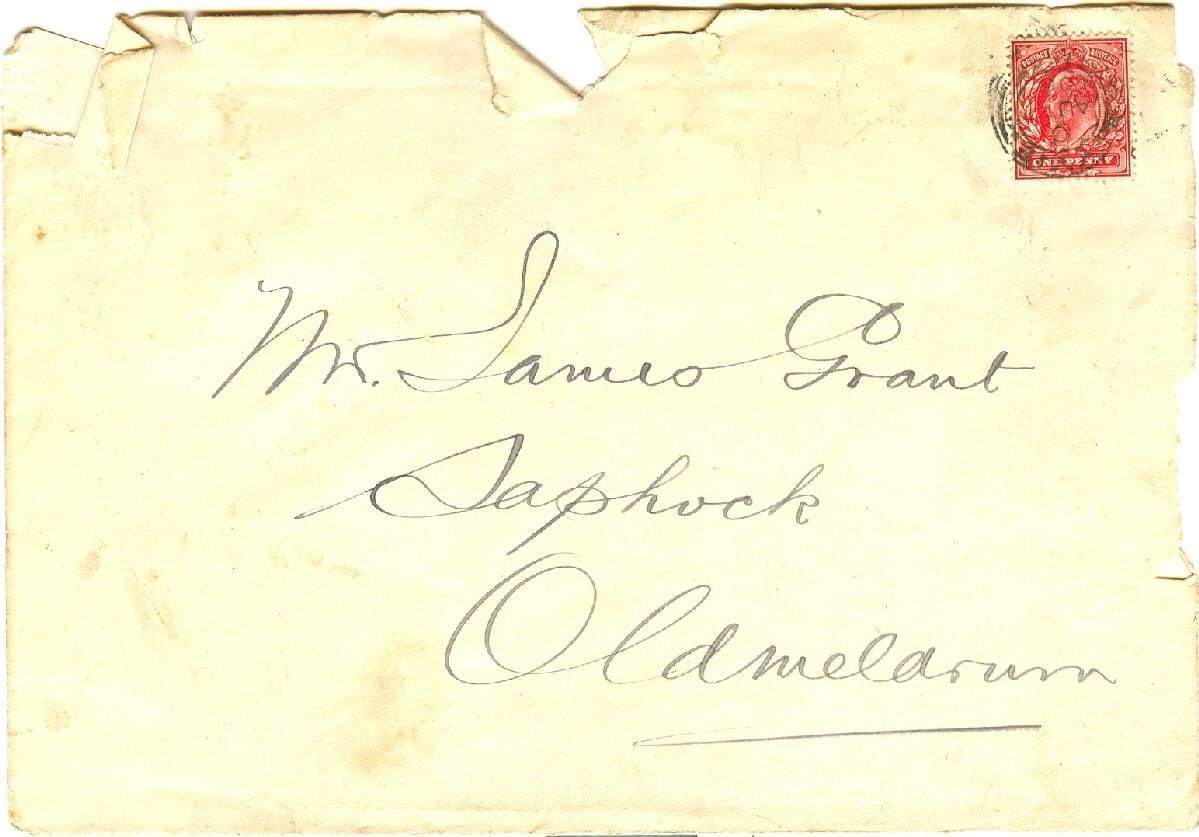 POSTAGE REVENUE
ONE PENNY
Mr. James Grant
Saphock
Oldmeldrum